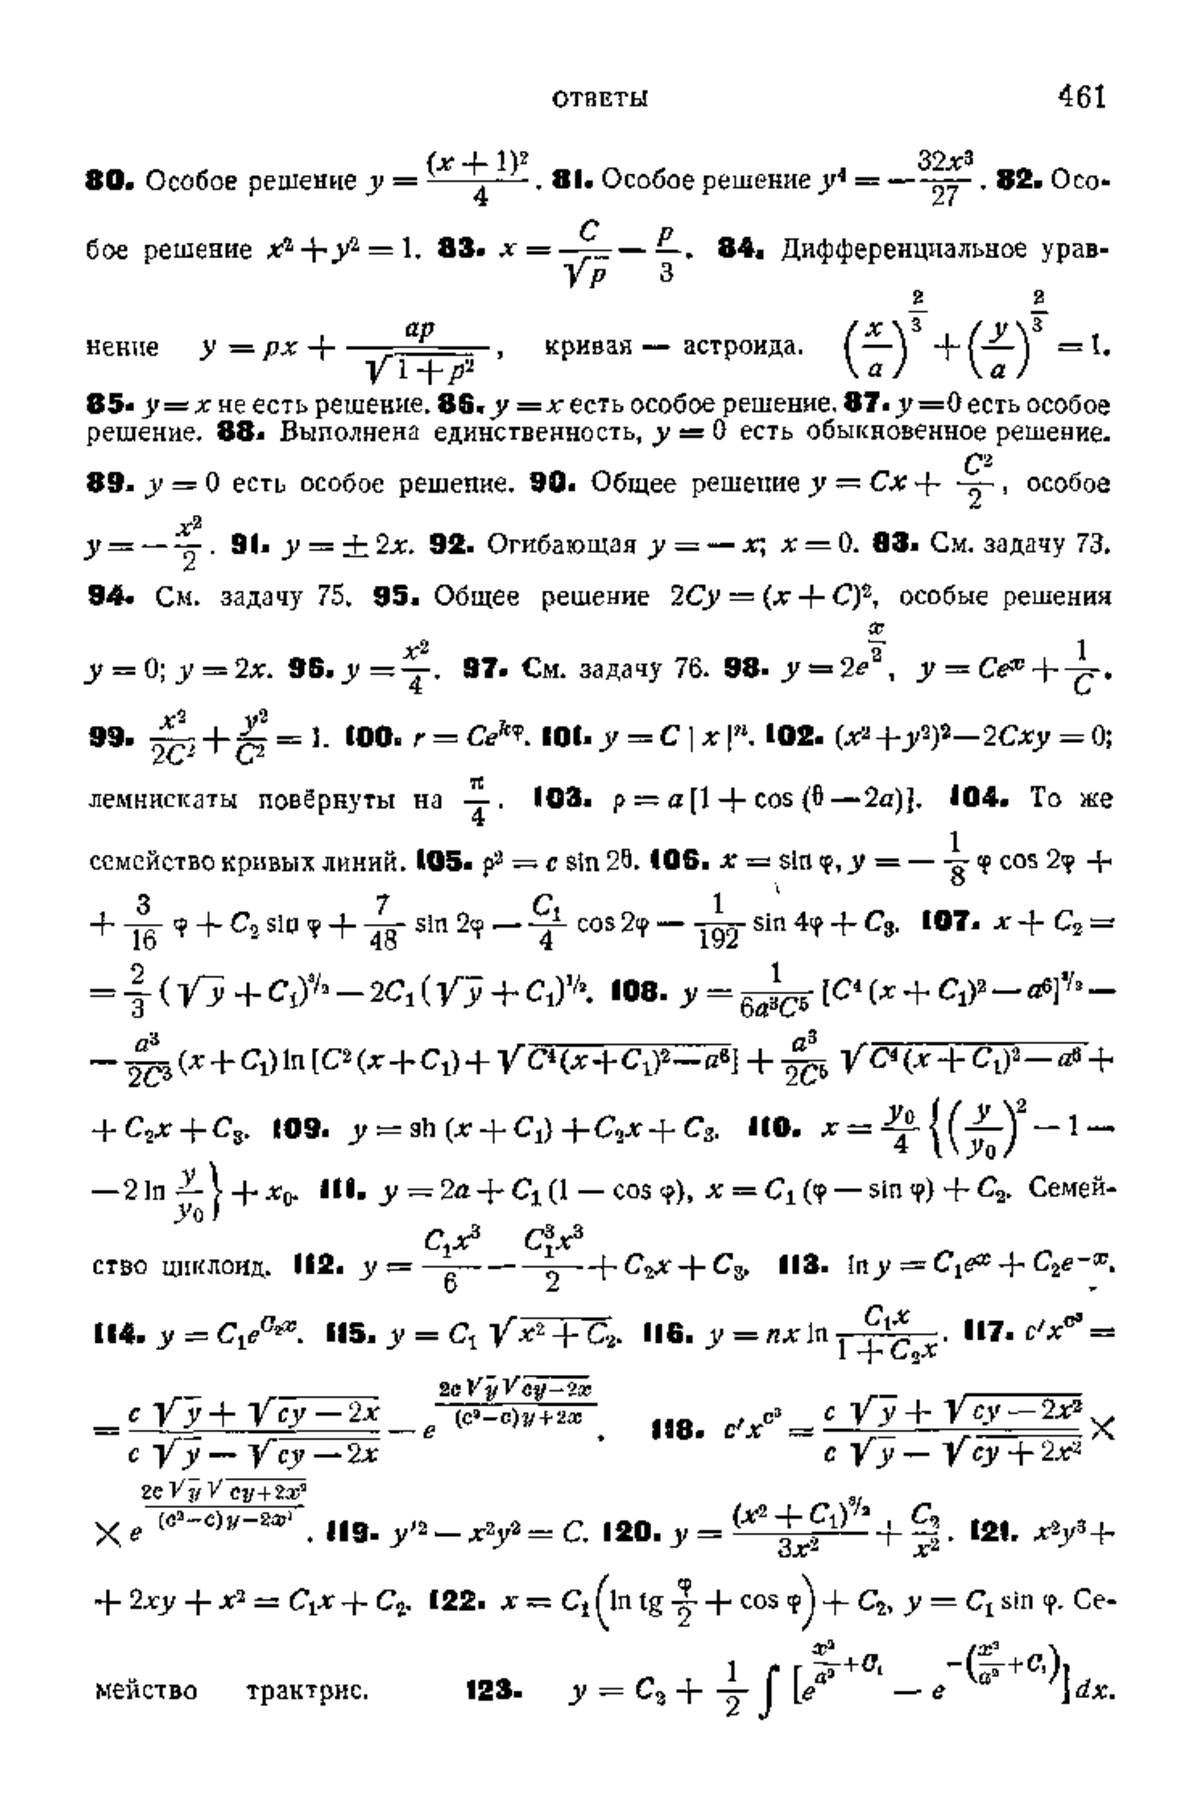 ОТВЕТЫ 461
80. Особое решение y = (x + 1)²/4. 81. Особое решение y⁴ = — 32x³/27. 82. Осо-
бое решение x² + y² = 1. 83. x = C/√p — p/3. 84. Дифференциальное урав-
нение y = px + ap/√(1 + p²), кривая — астроида. (x/a)^(2/3) + (y/a)^(2/3) = 1.
85. y = x не есть решение. 86. y = x есть особое решение. 87. y = 0 есть особое
решение. 88. Выполнена единственность, y = 0 есть обыкновенное решение.
89. y = 0 есть особое решение. 90. Общее решение y = Cx + C²/2, особое
y = — x²/2. 91. y = ± 2x. 92. Огибающая y = — x; x = 0. 83. См. задачу 73.
94. См. задачу 75. 95. Общее решение 2Cy = (x + C)², особые решения
y = 0; y = 2x. 96. y = x²/4. 97. См. задачу 76. 98. y = 2e^(x/2), y = Ce^x + 1/C.
99. x²/2C² + y²/C² = 1. 100. r = Ce^(kφ). 101. y = C | x |ⁿ. 102. (x² + y²)² — 2Cxy = 0;
лемнискаты повёрнуты на π/4. 103. ρ = a [1 + cos (θ — 2a)]. 104. То же
семейство кривых линий. 105. ρ² = c sin 2θ. 106. x = sin φ, y = — 1/8 φ cos 2φ +
+ 3/16 φ + C₂ sin φ + 7/48 sin 2φ — C₁/4 cos 2φ — 1/192 sin 4φ + C₃. 107. x + C₂ =
= 2/3 (√y + C₁)^(3/2) — 2C₁ (√y + C₁)^(1/2). 108. y = 1/(6a³C⁵) [C⁴ (x + C₁)² — a⁶]^(3/2) —
— a³/2C³ (x + C₁) ln [C² (x + C₁) + √(C⁴ (x + C₁)² — a⁶)] + a³/2C⁵ √(C⁴ (x + C₁)² — a⁶) +
+ C₂x + C₃. 109. y = sh (x + C₁) + C₂x + C₃. 110. x = y₀/4 {(y/y₀)² — 1 —
— 2 ln y/y₀} + x₀. 111. y = 2a + C₁ (1 — cos φ), x = C₁ (φ — sin φ) + C₂. Семей-
ство циклоид. 112. y = C₁x³/6 — C₁³x³/2 + C₂x + C₃. 113. ln y = C₁e^x + C₂e^(-x).
114. y = C₁e^(C₂x). 115. y = C₁ √(x² + C₂). 116. y = nx ln C₁x/(1 + C₂x). 117. c′x^(c³) =
= (c √y + √(cy — 2x))/(c √y — √(cy — 2x)) — e^(2c√y√(cy—2x)/((c²—c)y+2x)). 118. c′x^(c³) = (c √y + √(cy — 2x²))/(c √y — √(cy + 2x²)) ×
× e^(2c√y√(cy+2x²)/((c²—c)y—2x²)). 119. y′² — x²y² = C. 120. y = (x² + C₁)^(3/2)/3x² + C₂/x². 121. x²y³ +
+ 2xy + x² = C₁x + C₂. 122. x = C₁ (ln tg φ/2 + cos φ) + C₂, y = C₁ sin φ. Се-
мейство трактрис. 123. y = C₂ + 1/2 ∫ [e^(x²/a² + C₁) — e^(-(x²/a² + C₁))] dx.